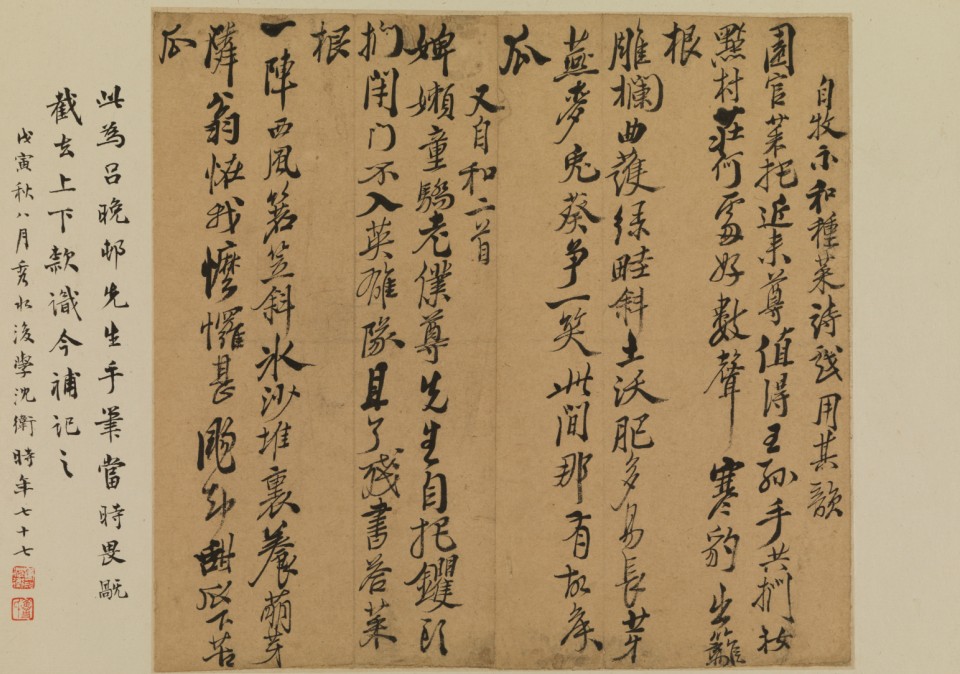 自牧示和種菜詩戲用其韻
園官菜把近来尊值得王孫手共捫秋
點村莊何處好數聲寒豹出籬
根
雕欄曲護綠畦斜土沃肥多易長芽
燕麥兔葵争一笑此間那有故侯
瓜
又自和二首
婢嬾童驕老僕尊先生自把钁頭
捫閉门不入英雄隊且了殘書咨菜
根
一陣西風箬笠斜氷沙堆裏養萌芽
隣翁怪我懡㦬甚却甜瓜下苦
瓜
此為呂晚邨先生手筆當時畏
截去上下款識今補記之
戊寅秋八月秀水後學沈衛時年七十七